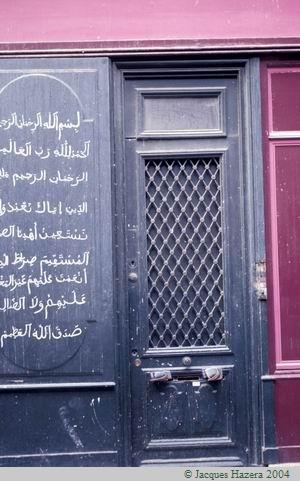 بسم الله الرحمان الرحيم
الحمد لله رب العالمين
الرحمان الرحيم
الدين إياك نعبد و
نستعين أهدنا الصر
المستقيم صراط الذ
أنعمت عليهم غير المغ
عليهم ولا الضال
صدق الله العظيم
© Jacques Hazera 2004